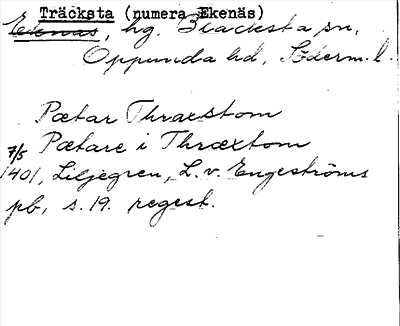 Träcksta (numera Ekenäs)
Ekenäs, hg, Blacksta sn,
Oppunda hd, Söderm. l.
Pætar Thraxstom
7/5 Pætare i Thræxtom
1401, Liljegren, L. v. Engeströms
pb, s. 19. regest.